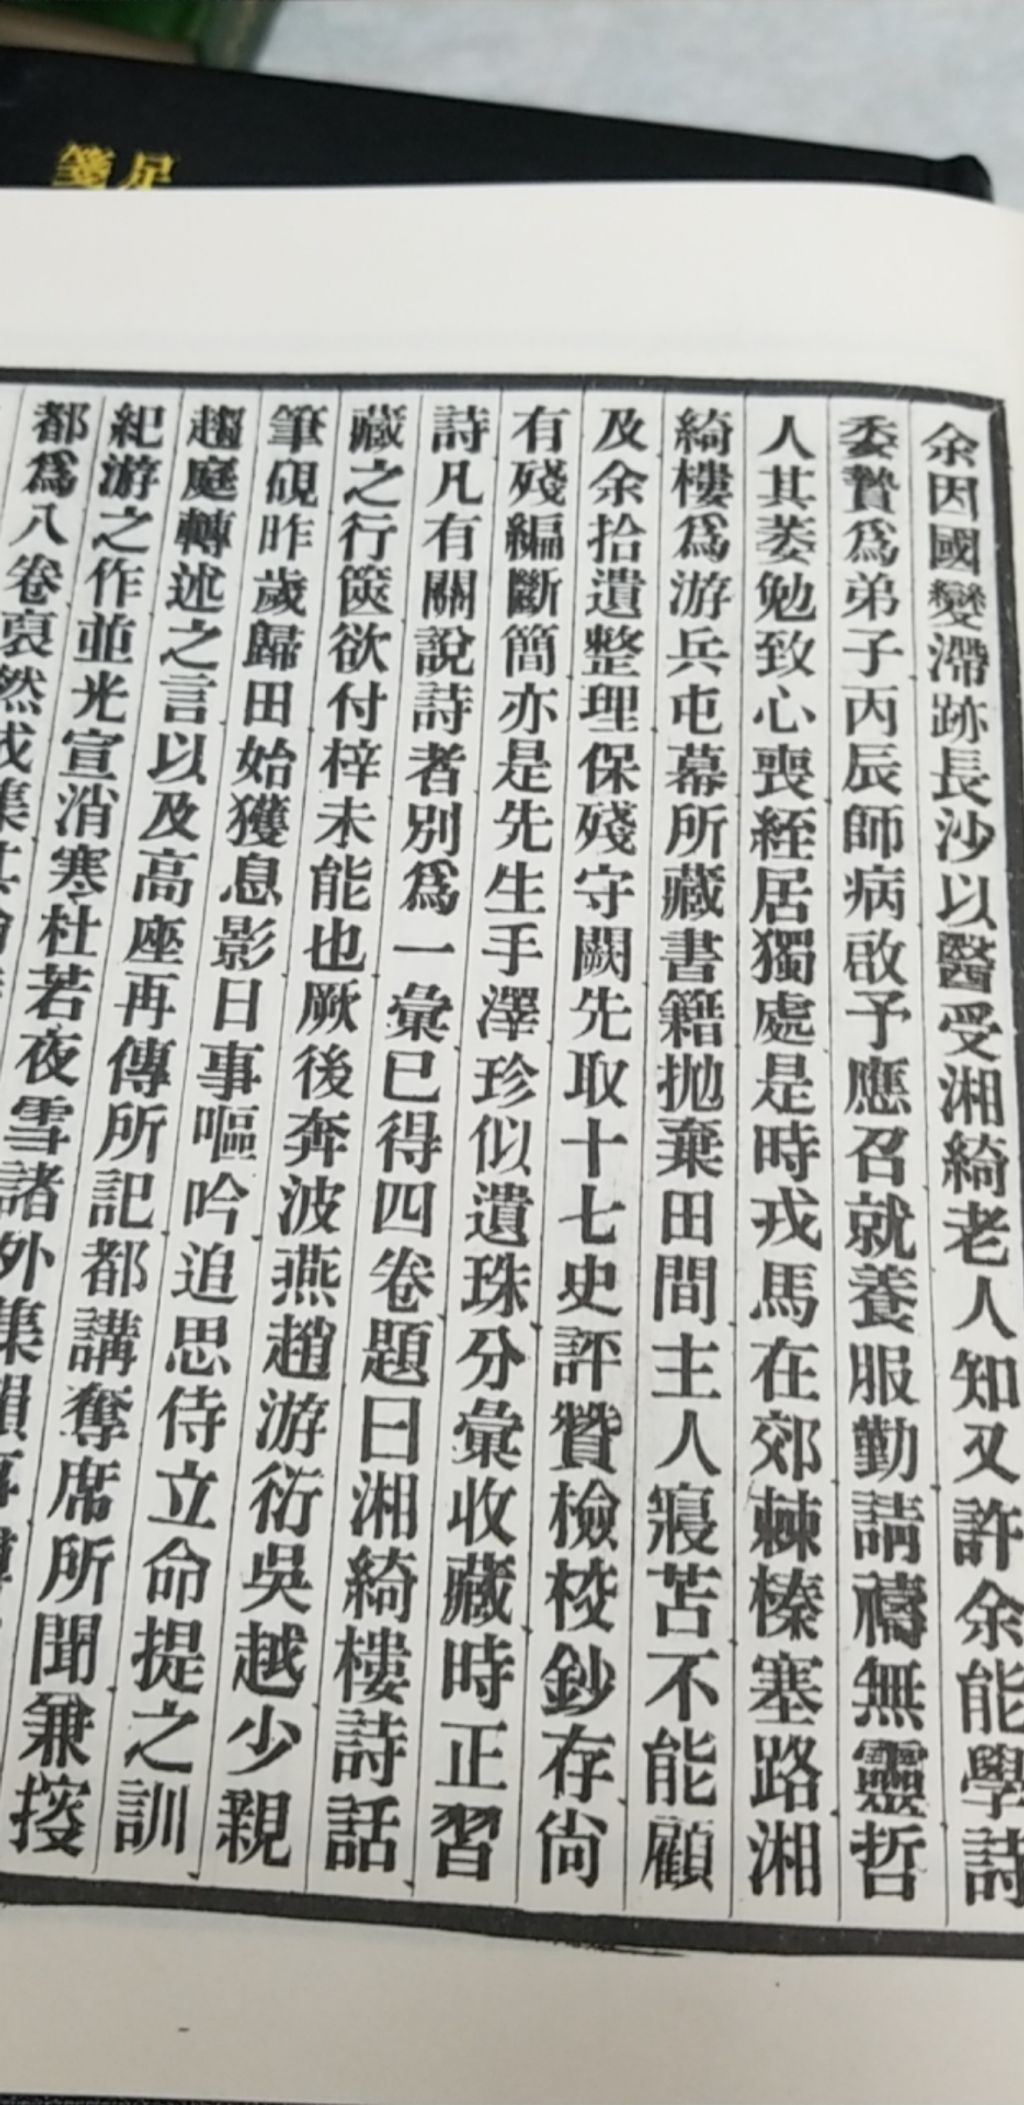 余因國變滯跡長沙以醫受湘綺老人知又許余能學詩
委贄爲弟子丙辰師病啟予應召就養服勤請禱無靈哲
人其萎勉致心喪絰居獨處是時戎馬在郊棘榛塞路湘
綺樓爲游兵屯幕所藏書籍拋棄田間主人寢苫不能顧
及余拾遺整理保殘守闕先取十七史評贊檢校鈔存尙
有殘編斷簡亦是先生手澤珍似遺珠分彙收藏時正習
詩凡有關說詩者別爲一彙已得四卷題曰湘綺樓詩話
藏之行篋欲付梓未能也厥後奔波燕趙游衍吳越少親
筆硯昨歲歸田始獲息影日事嘔吟追思侍立命提之訓
趨庭轉述之言以及高座再傳所記都講奪席所聞兼搜
紀游之作並光宣消寒杜若夜雪諸外集
都爲八卷裒然成集